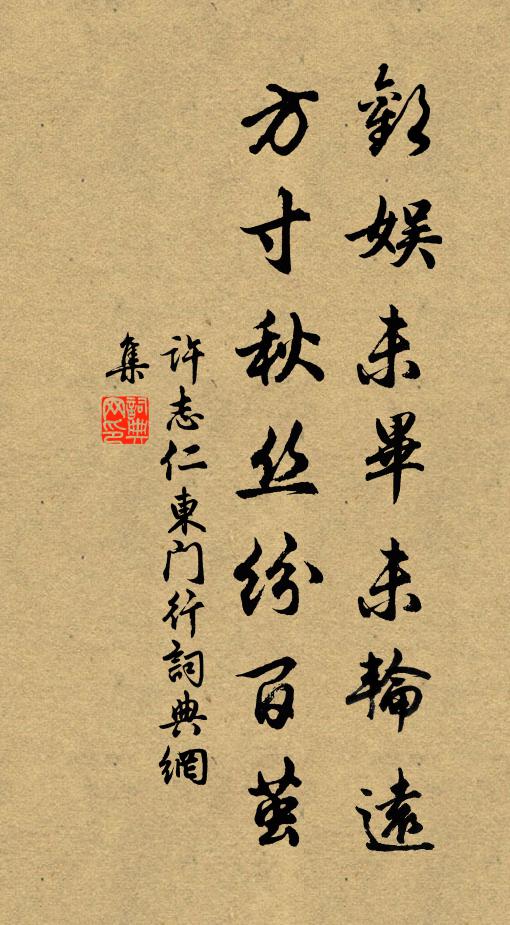 歡娛未畢未輪遠
方寸秋丝紛百茧
許志仁東门行詞典網
集
詞典
网印